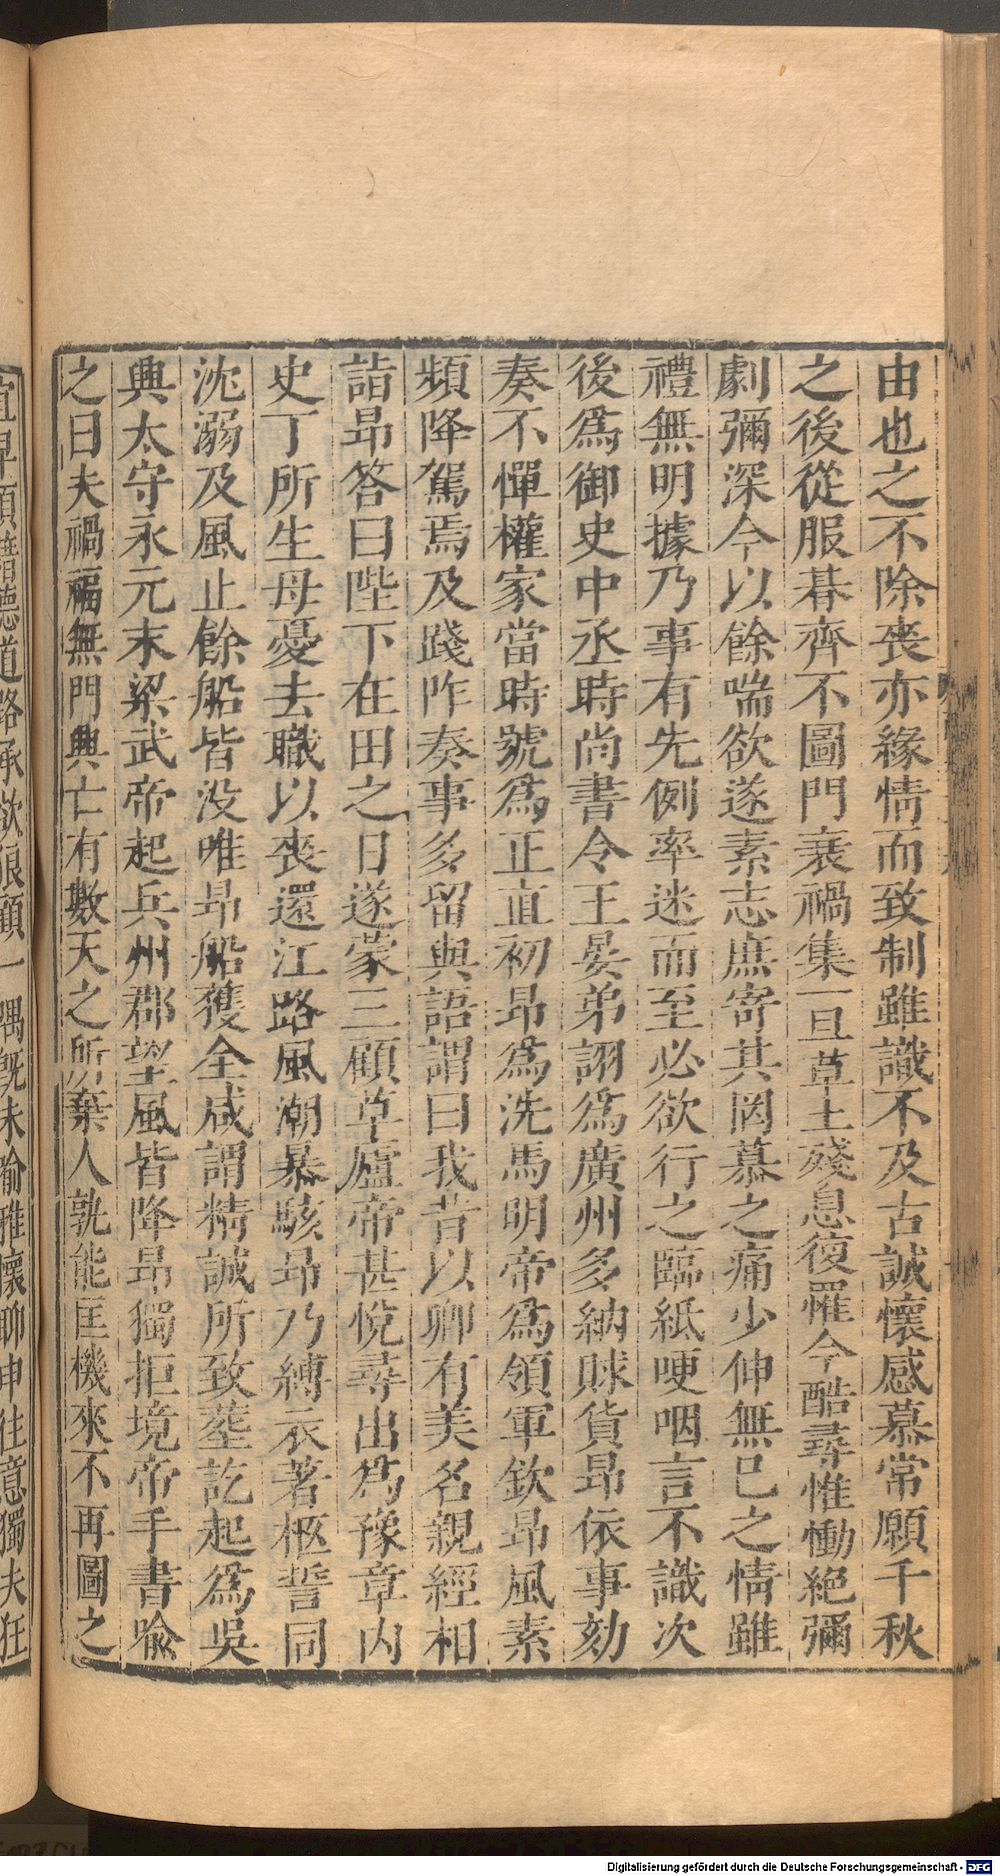 由也之不除喪亦緣情而致制雖識不及古誠懷感慕常願千秋
之後從服朞齊不圖門衰禍集一旦草土殘息復罹今酷尋惟慟絕彌
劇彌深今以餘喘欲遂素志庶寄其罔慕之痛少伸無已之情雖
禮無明據乃事有先例率迷而至必欲行之臨紙哽咽言不識次
後爲御史中丞時尚書令王晏弟詡爲廣州多納賕貨昂依事劾
奏不憚權家當時號爲正直初昂爲洗馬明帝爲領軍欽昂風素
頻降駕焉及踐阼奏事多留與語謂曰我昔以卿有美名親經相
詣昂答曰陛下在田之日遂蒙三顧草廬帝甚悅尋出爲豫章內
史丁所生母憂去職以喪還江路風潮暴駭昂乃縛衣著柩誓同
沈溺及風止餘船皆没唯昂船獲全咸謂精誠所致葬訖起爲吳
興太守永元末梁武帝起兵州郡望風皆降昂獨拒境帝手書喩
之曰夫禍福無門興亡有數天之所棄人孰能匡機來不再圖之
宜早頃藉聽道路承欲狼顧一隅旣未喻雅懷聊申往意獨夫狂
Digitalisierung gefördert durch die Deutsche Forschungsgemeinschaft - DFG